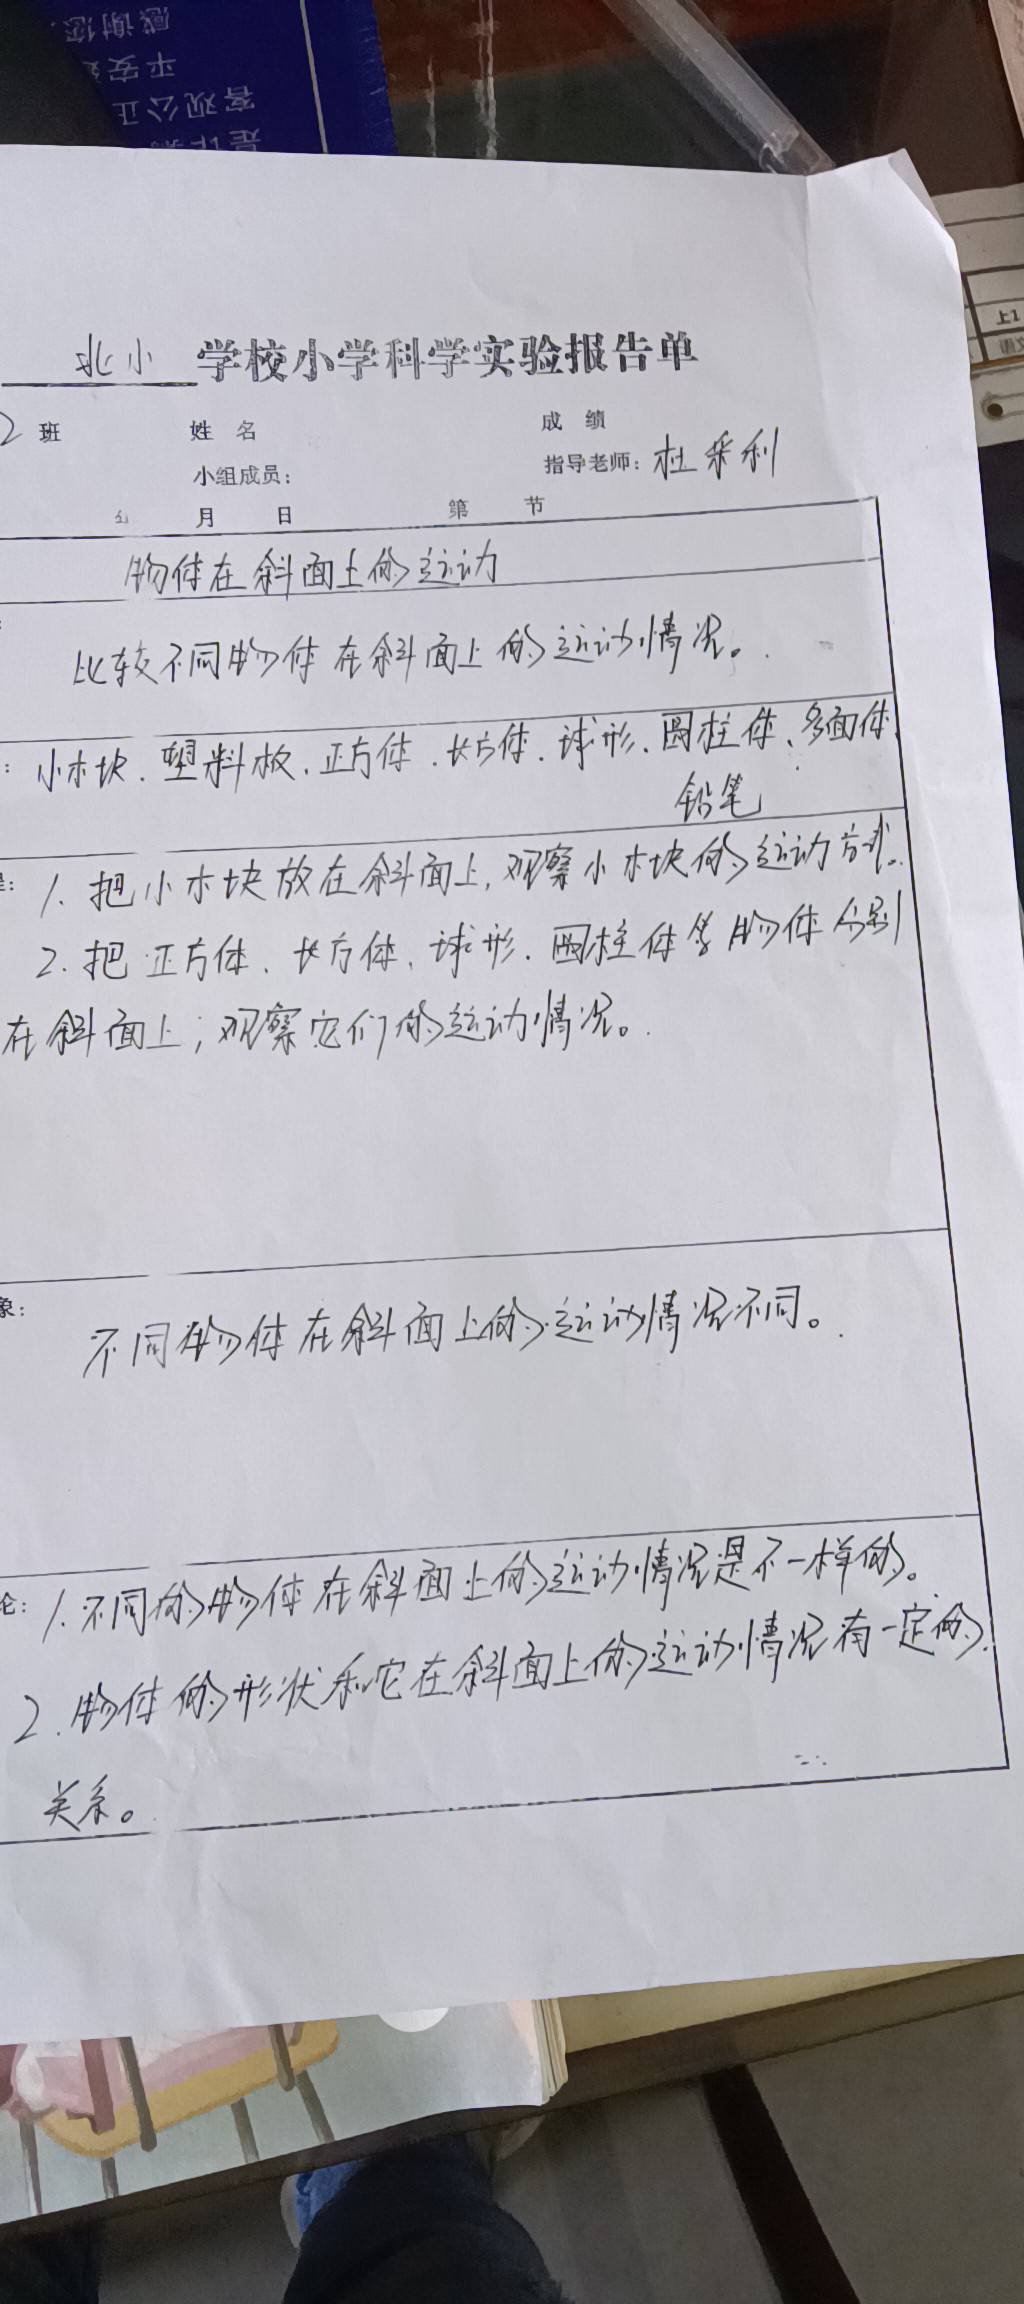 感谢您
平安
客观公正
北小 学校小学科学实验报告单
2 班 姓 名 成 绩
小组成员: 指导老师: 杜采利
月 日 第 节
物体在斜面上的运动
比较不同物体在斜面上的运动情况。
: 小木块、塑料板、正方体、长方体、球形、圆柱体、多面体、
铅笔
1. 把小木块放在斜面上,观察小木块的运动方式。
2. 把正方体、长方体、球形、圆柱体等物体分别
在斜面上,观察它们的运动情况。
象:
不同物体在斜面上的运动情况不同。
论: 1. 不同的物体在斜面上的运动情况是不一样的。
2. 物体的形状和它在斜面上的运动情况有一定的
关系。